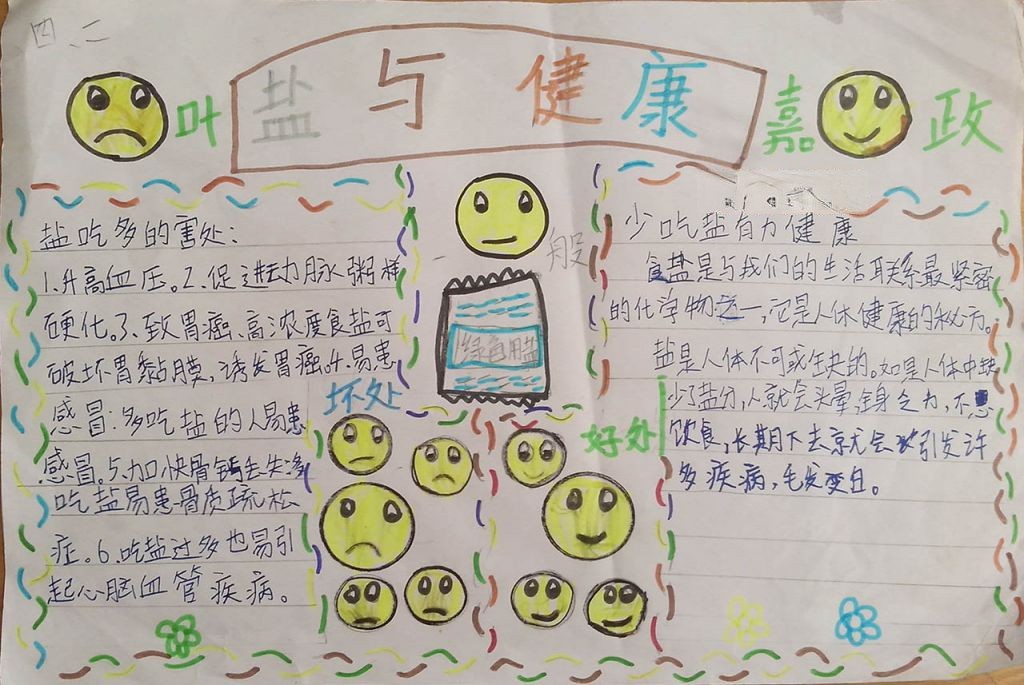 四、二
叶
盐与健康
嘉
政
盐吃多的害处：
1.升高血压。2.促进动脉粥样
硬化。3.致胃癌、高浓度食盐可
破坏胃黏膜，诱发胃癌。4.易患
感冒：多吃盐的人易患
感冒。5.加快骨钙丢失
吃盐易患骨质疏松
症。6.吃盐过多也易引
起心脑血管疾病。
般
绿色用盐
坏处
好处
少吃盐有力健康
食盐是与我们的生活联系最紧密
的化学物之一，它是人体健康的秘方。
盐是人体不可或缺的。如是人体中缺
少了盐分，人就会头晕，身乏力，不思
饮食，长期下去就会引发许
多疾病，毛发变白。